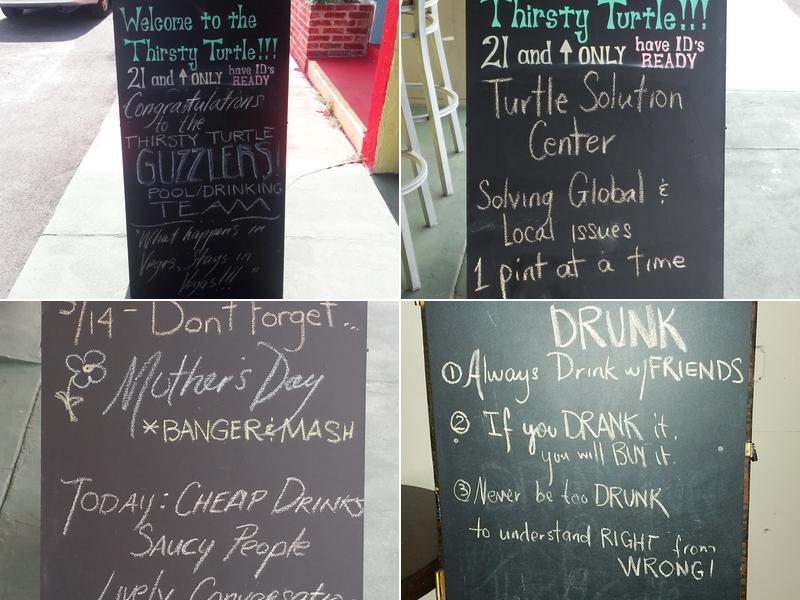 Welcome to the
Thirsty Turtle!!!
21 and ↑ ONLY have ID's
READY
Congratulations
to the
THIRSTY TURTLE
GUZZLERS!
POOL/DRINKING
TEAM
"What happens in
Vegas, Stays in
Vegas!!!!"
Thirsty Turtle!!!
21 and ↑ ONLY have ID's
READY
Turtle Solution
Center
Solving Global &
Local Issues
1 pint at a time
5/14 - Don't Forget...
Mother's Day
*BANGER & MASH
TODAY: CHEAP DRINKS
SAUCY People
Lively Conversation
DRUNK
① Always Drink w/FRIENDS
② If you DRANK it,
you will BUY it.
③ Never be too DRUNK
to understand RIGHT from
WRONG!